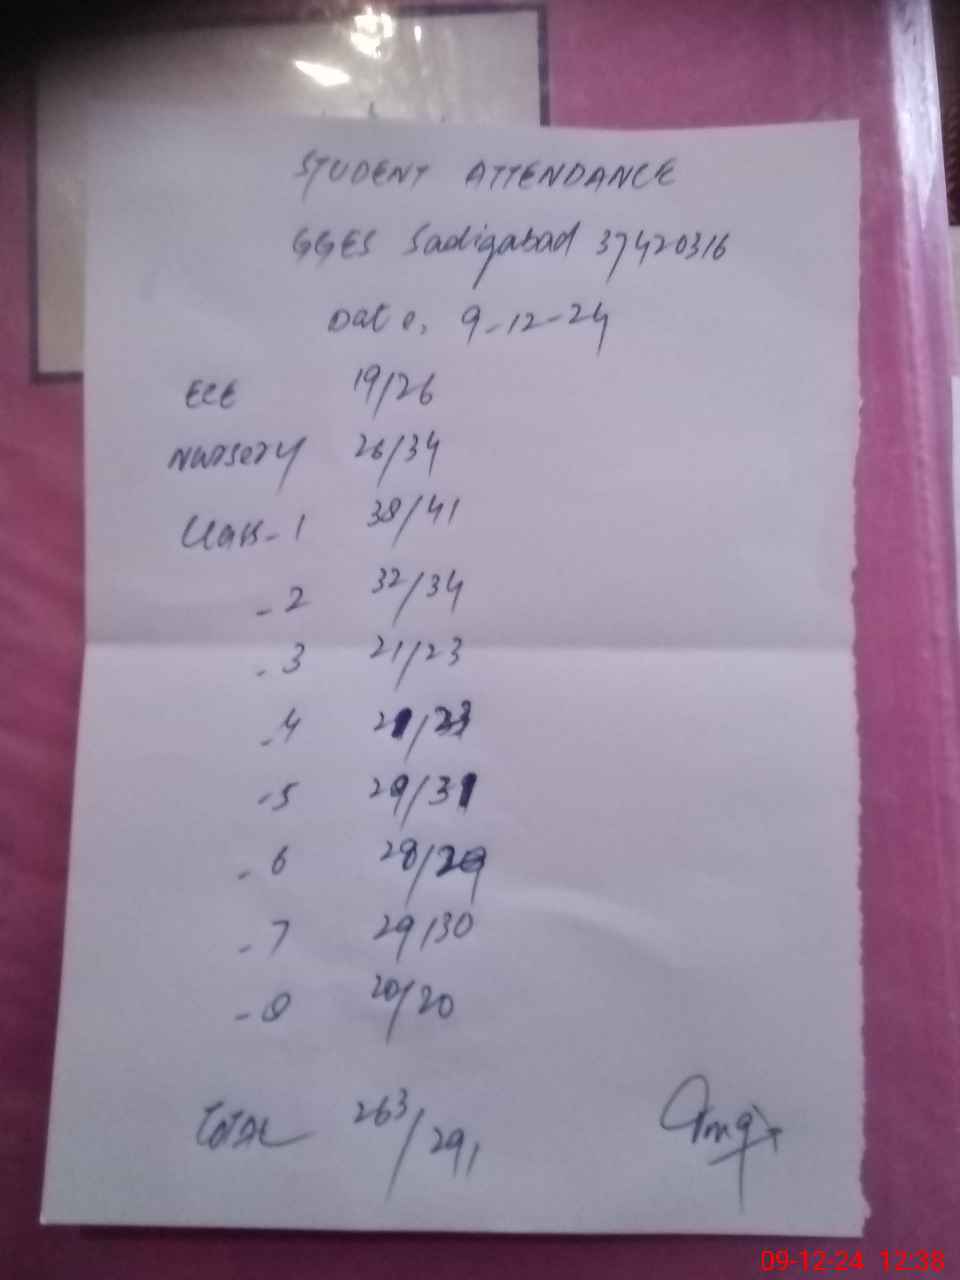 STUDENT ATTENDANCE
GGES Sadiqabad 37420316
Date, 9-12-24
ECE 19/26
Nursery 26/34
Class-1 38/41
-2 32/34
-3 21/23
-4 21/23
-5 29/31
-6 28/29
-7 29/30
-8 20/20
TOTAL 263/291
09-12-24 12:38